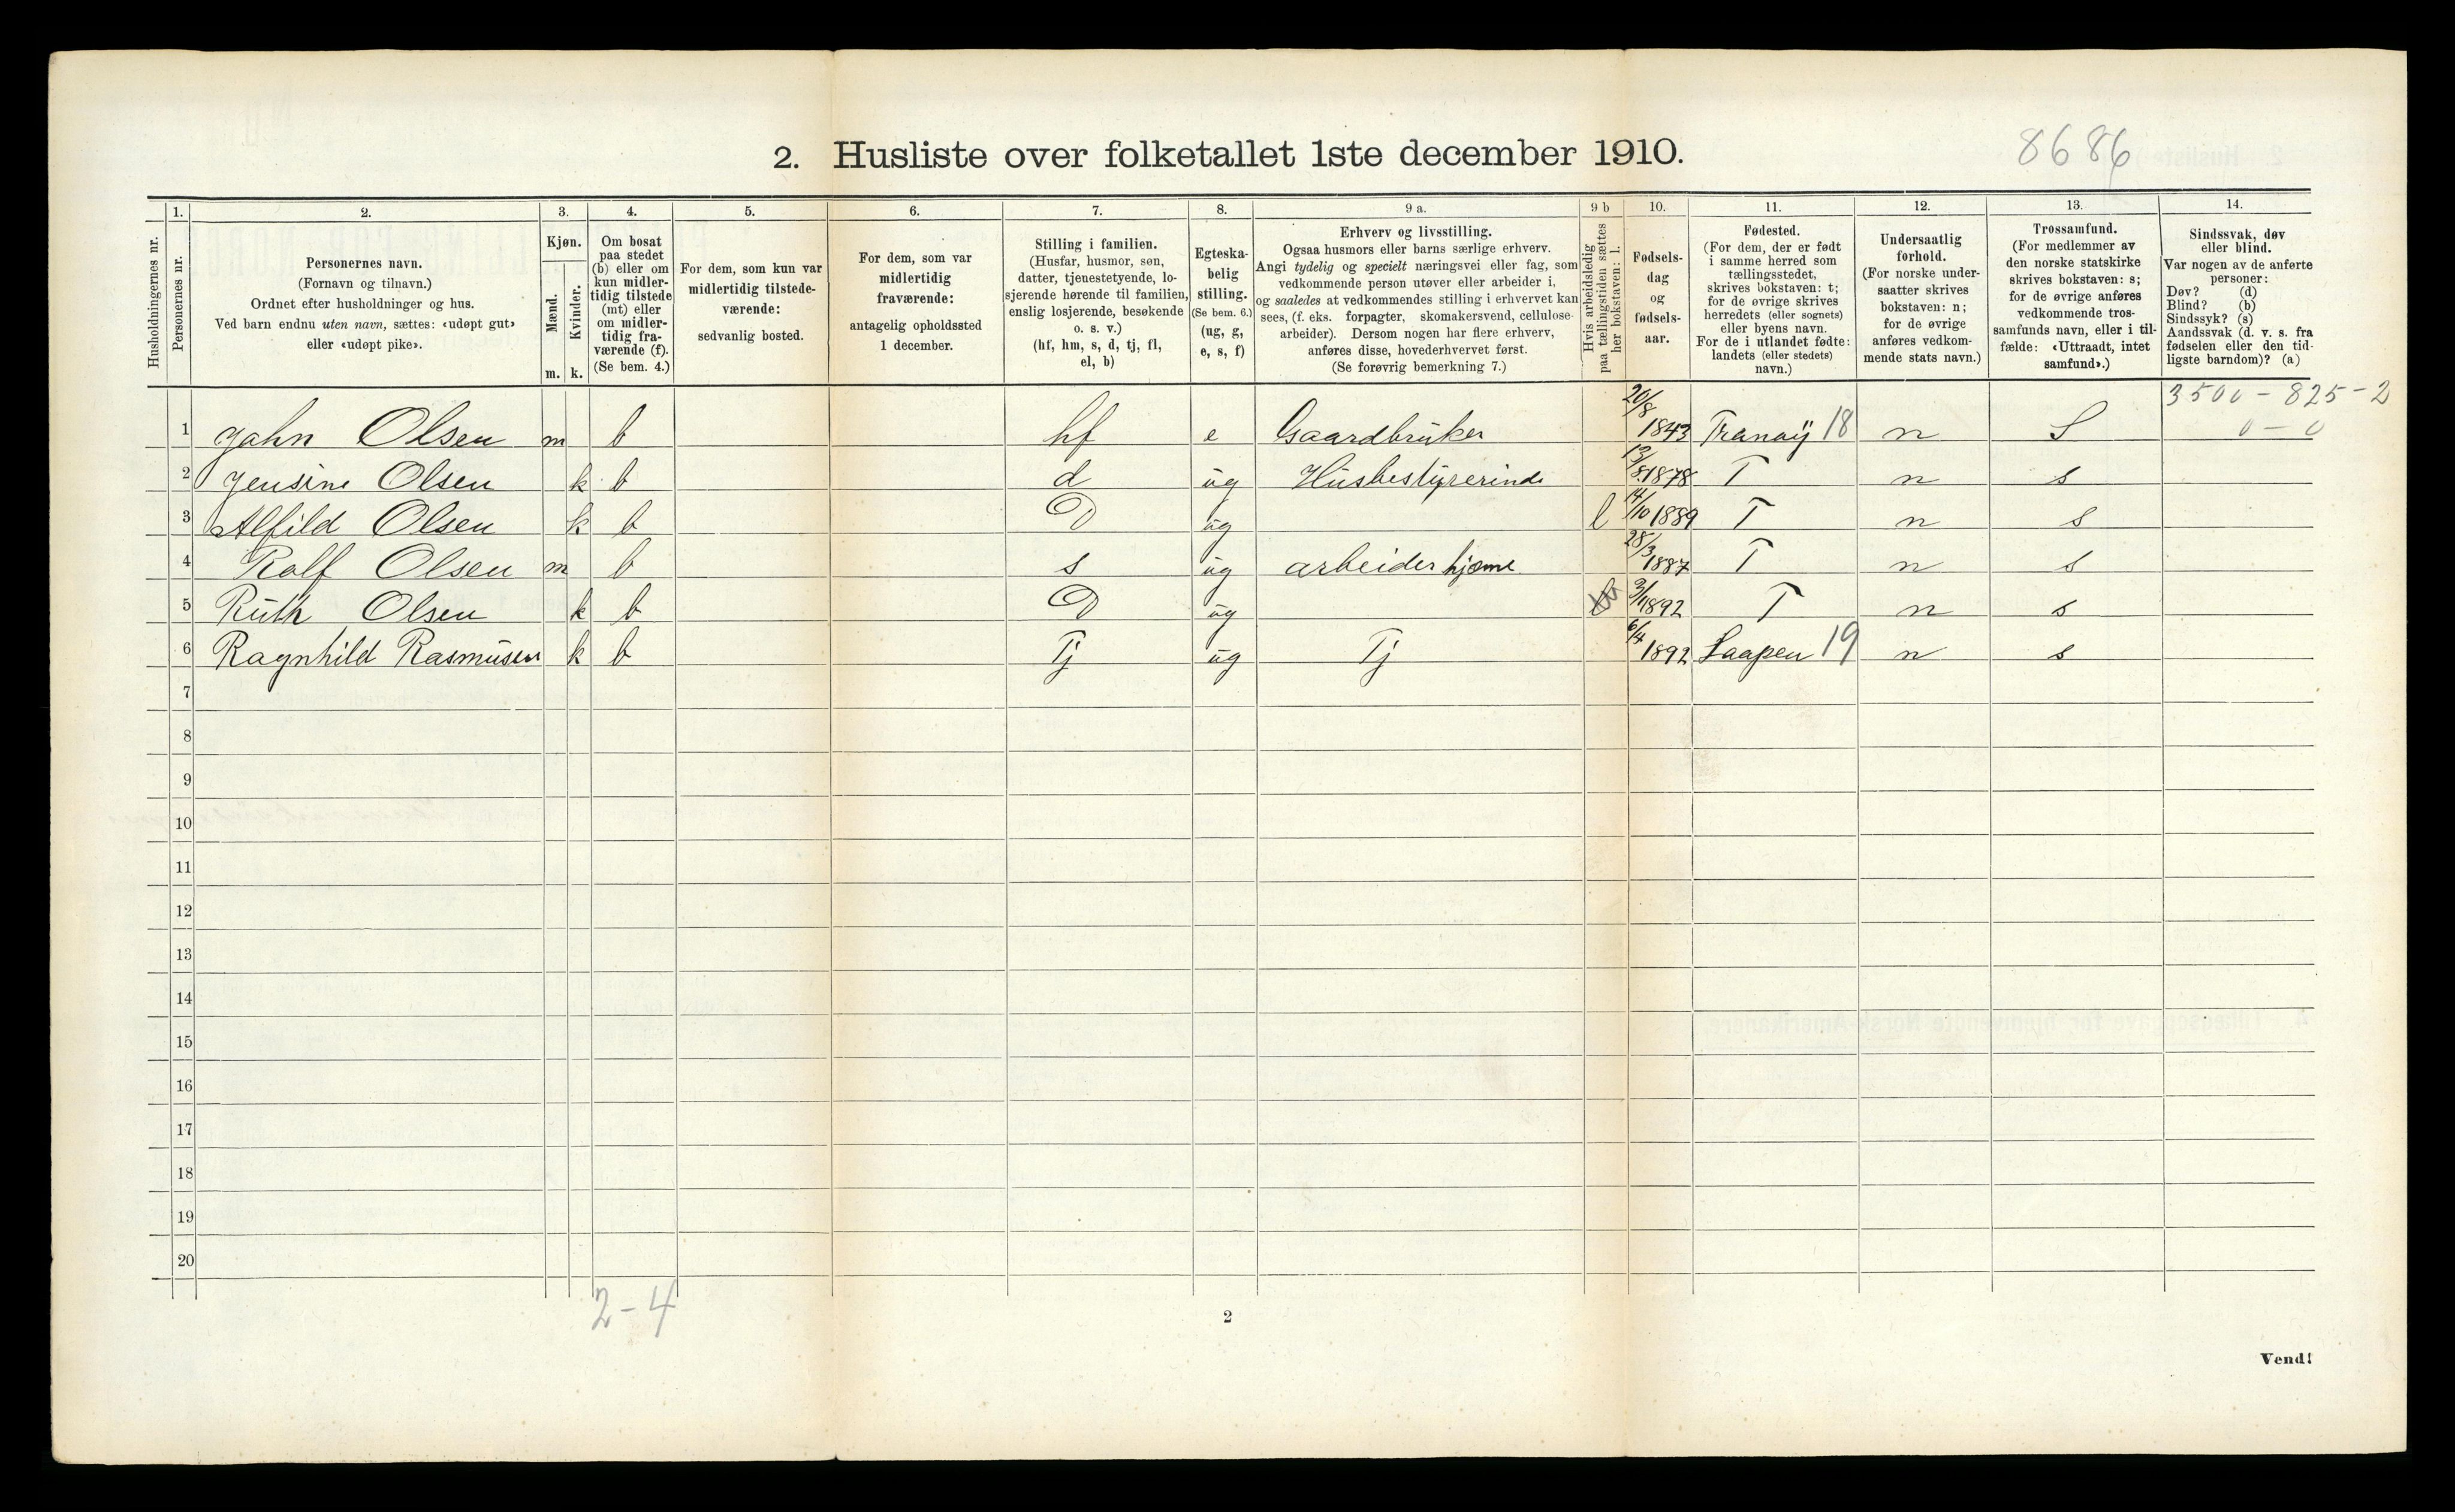 2. Husliste over folketallet 1ste december 1910.
8686
Husholdningernes nr.
1.
Personernes nr.
2.
Personernes navn.
(Fornavn og tilnavn.)
Ordnet efter husholdninger og hus.
Ved barn endnu uten navn, sættes: «udøpt gut»
eller «udøpt pike».
3.
Kjøn.
Mænd.
Kvinder.
m. k.
4.
Om bosat
paa stedet
(b) eller om
kun midler-
tidig tilstede
(mt) eller
om midler-
tidig fra-
værende (f).
(Se bem. 4.)
5.
For dem, som kun var
midlertidig tilstede-
værende:
sedvanlig bosted.
6.
For dem, som var
midlertidig
fraværende:
antagelig opholdssted
1 december.
7.
Stilling i familien.
(Husfar, husmor, søn,
datter, tjenestetyende, lo-
sjerende hørende til familien,
enslig losjerende, besøkende
o. s. v.)
(hf, hm, s, d, tj, fl,
el, b)
8.
Egteska-
belig
stilling.
(Se bem. 6.)
(ug, g,
e, s, f)
9 a.
Erhverv og livsstilling.
Ogsaa husmors eller barns særlige erhverv.
Angi tydelig og specielt næringsvei eller fag, som
vedkommende person utøver eller arbeider i,
og saaledes at vedkommendes stilling i erhvervet kan
sees, (f. eks. forpagter, skomakersvend, cellulose-
arbeider). Dersom nogen har flere erhverv,
anføres disse, hovederhvervet først.
(Se forøvrig bemerkning 7.)
9 b
Hvis arbeidsledig
paa tællingstiden sættes
her bokstaven: l.
10.
Fødsels-
dag
og
fødsels-
aar.
11.
Fødested.
(For dem, der er født
i samme herred som
tællingsstedet,
skrives bokstaven: t;
for de øvrige skrives
herredets (eller sognets)
eller byens navn.
For de i utlandet fødte:
landets (eller stedets)
navn.)
12.
Undersaatlig
forhold.
(For norske under-
saatter skrives
bokstaven: n;
for de øvrige
anføres vedkom-
mende stats navn.)
13.
Trossamfund.
(For medlemmer av
den norske statskirke
skrives bokstaven: s;
for de øvrige anføres
vedkommende tros-
samfunds navn, eller i til-
fælde: «Uttraadt, intet
samfund».)
14.
Sindssvak, døv
eller blind.
Var nogen av de anførte
personer:
Døv? (d)
Blind? (b)
Sindssyk? (s)
Aandssvak (d. v. s. fra
fødselen eller den tid-
ligste barndom)? (a)
3500 - 825 - 2
0 - 0
1 Jahn Olsen m b hf e Gaardbruker 20/8 1843 Tranøÿ 18 n S
2 Jensine Olsen k b d ug Husbestyrerinde 13/8 1878 T n s
3 Alfild Olsen k b D ug l 14/10 1889 T n s
4 Rolf Olsen m b s ug arbeider hjeme 28/3 1887 T n s
5 Ruth Olsen k b D ug 3/11 1892 T n s
6 Ragnhild Rasmusen k b Tj ug Tj 6/4 1892 Laapen 19 n s
7
8
9
10
11
12
13
14
15
16
17
18
19
20
2-4
2
Vend!